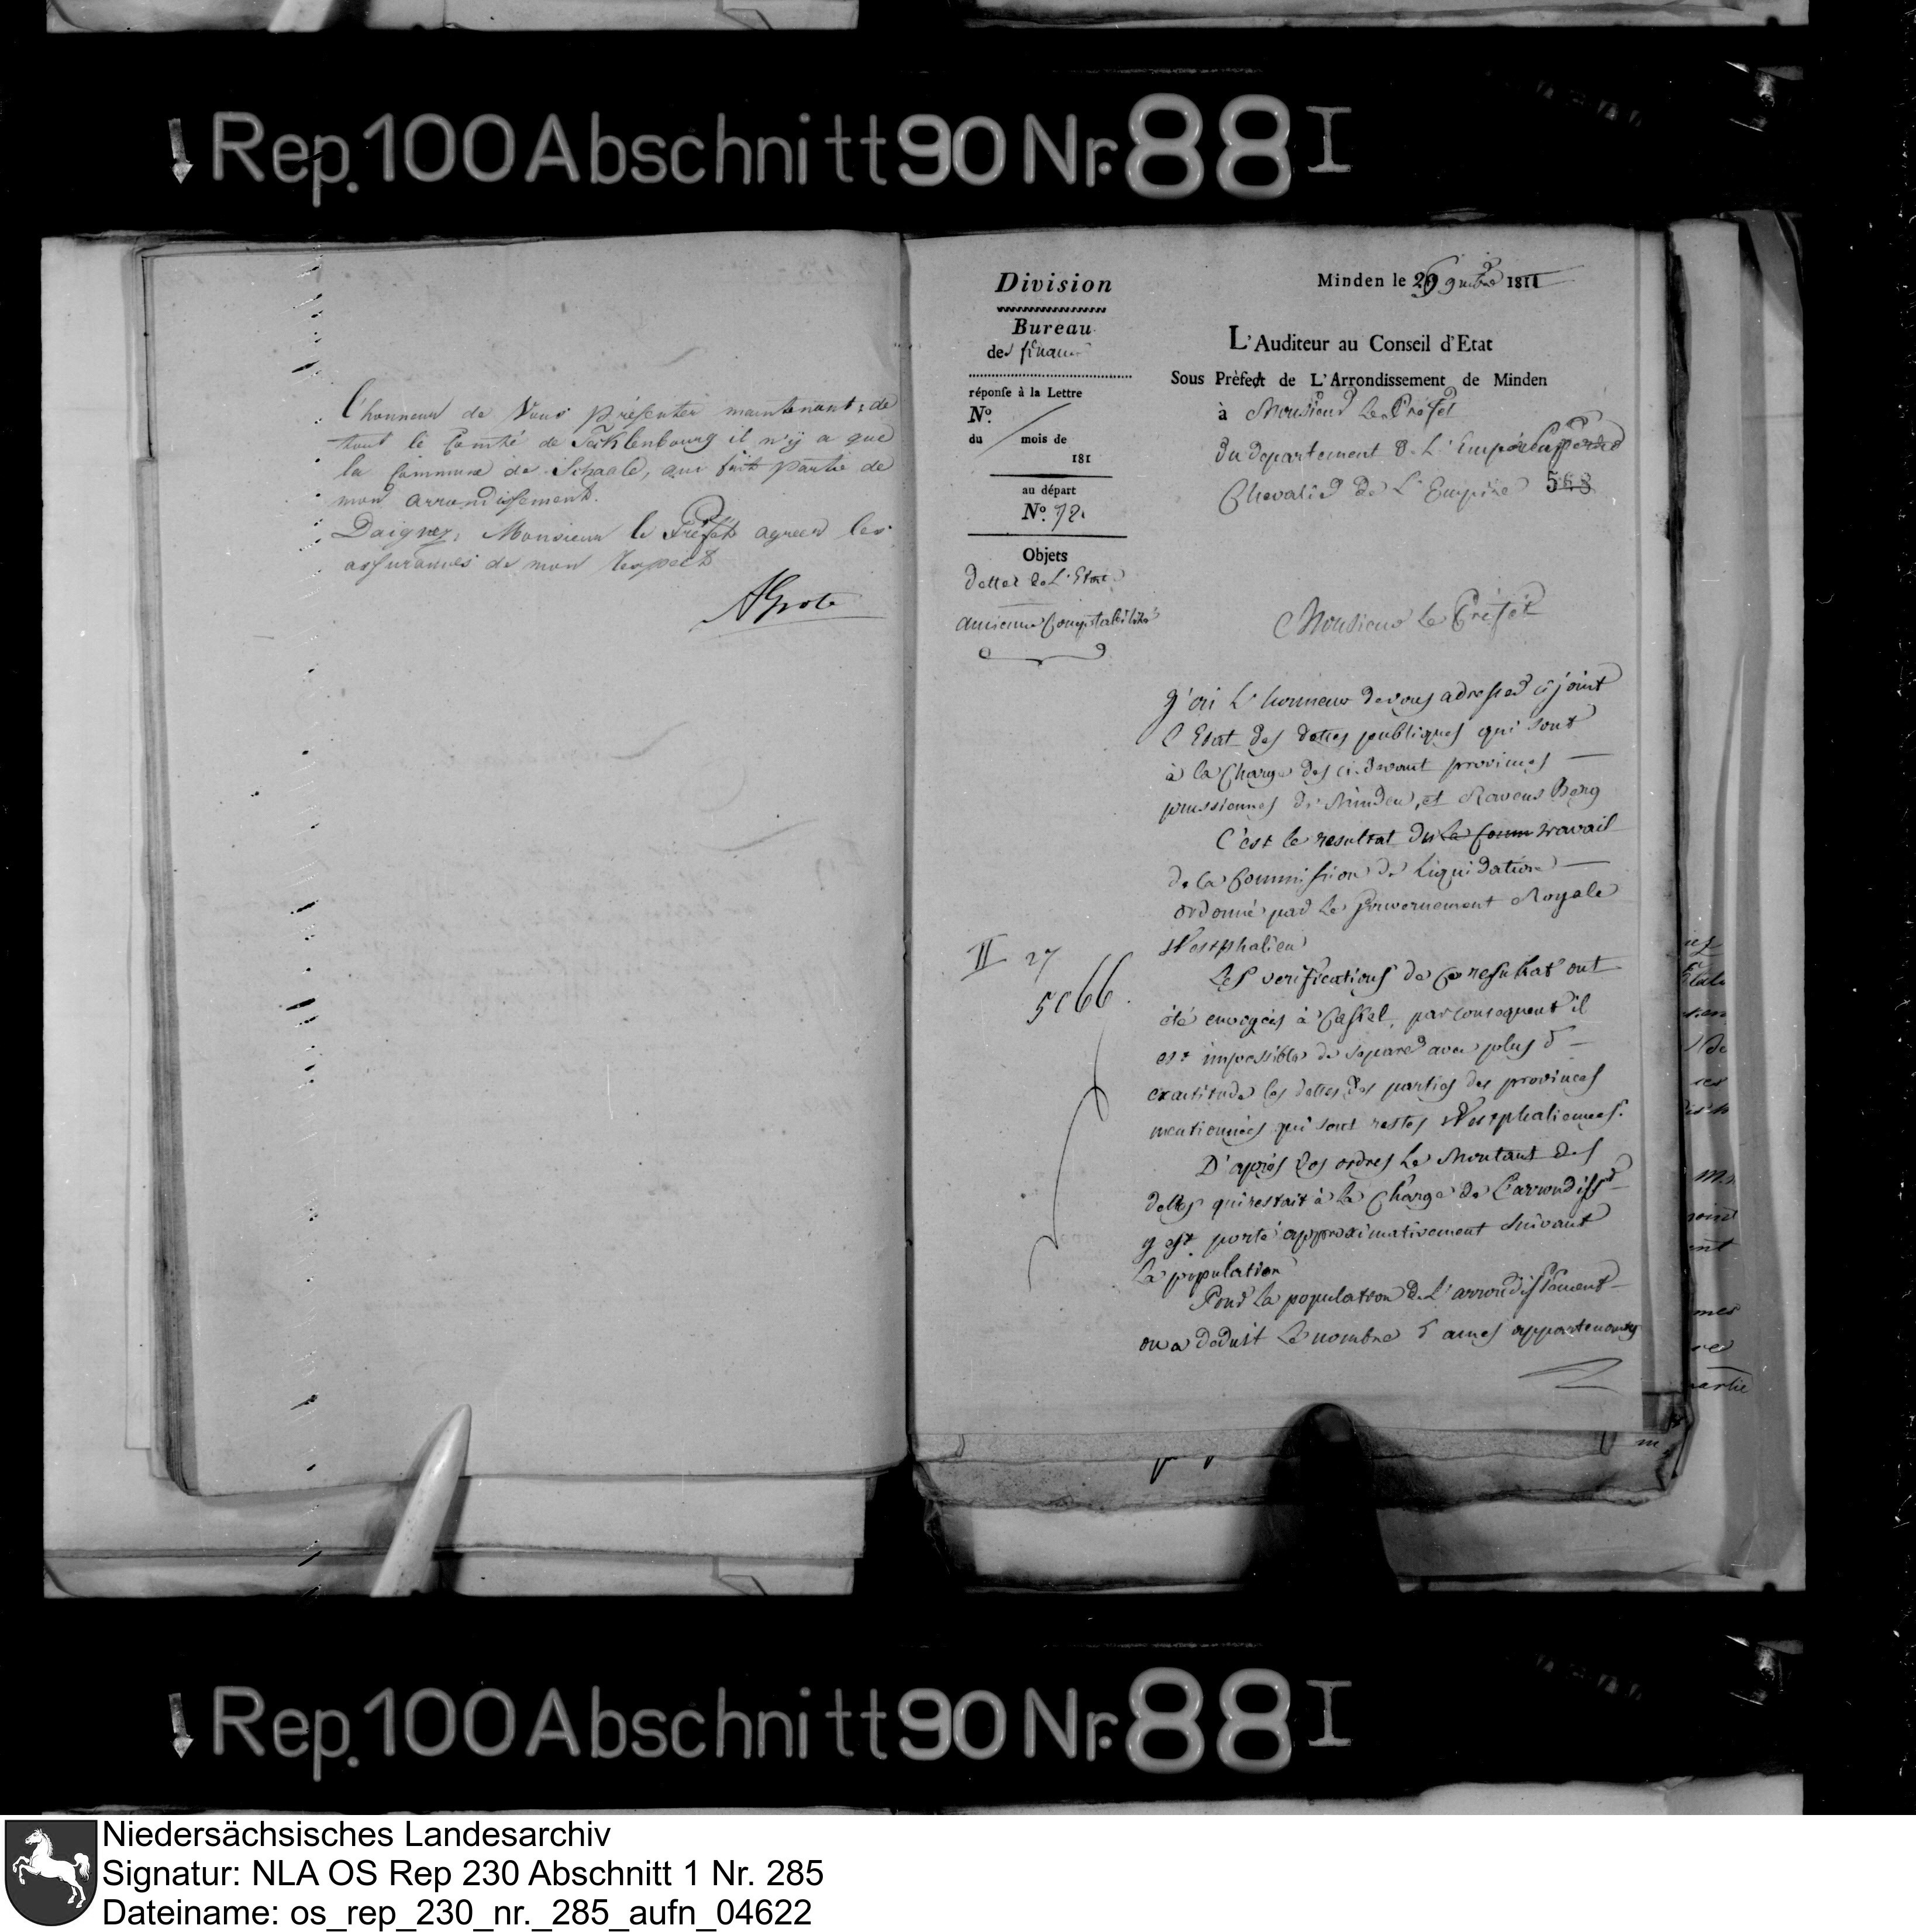 Rep. 100 Abschnitt 90 Nr. 88 I
l'honneur de Vous présenter maintenant; de
tout le Comté de Tecklenbourg il n'ÿ a que
la Commune de Schaale, qui fait partie de
mon arrondissement.
Daignez, Monsieur le Préfet agreer les
assurances de mon Respect
AGrote
Division
Bureau
des finances
réponse à la Lettre
Nº.
du mois de
181
au départ
Nº. 72.
Objets
Dettes de L'Etat
ancienne Comptabilité
II 27
5066.
Minden le 29 9mbre 1811
L'Auditeur au Conseil d'Etat
Sous Prèfect de L'Arrondissement de Minden
à Monsieur Le Préfet
du departement de L'
Chevalier de L'Empire 568
Monsieur Le Préfet
J'ai L'honneur de vous adresser ci joint
l'Etat des dettes publiques qui sont
à la Charge des ci-devant provinces
prussiennes de Minden, et Ravensberg
C'est le resultat du la Comm travail
de la Commission de Liquidation
ordonné par Le Gouvernement Royale
Westphalien
Les verifications de ce resultat ont
été envoyées à Cassel, par consequent il
est impossible de separer avec plus d'
exactitude les dettes des parties des provinces
mentionnées qui sont restes Westphaliennes.
D'après les ordres Le Montant des
dettes qui restait à la Charge de L'arrondisst
y est porté approximativement suivant
La population
Pour la population de L'arrondissement
on a deduit Le nombre d'ames appartenants
Rep. 100 Abschnitt 90 Nr. 88 I
Niedersächsisches Landesarchiv
Signatur: NLA OS Rep 230 Abschnitt 1 Nr. 285
Dateiname: os_rep_230_nr._285_aufn_04622